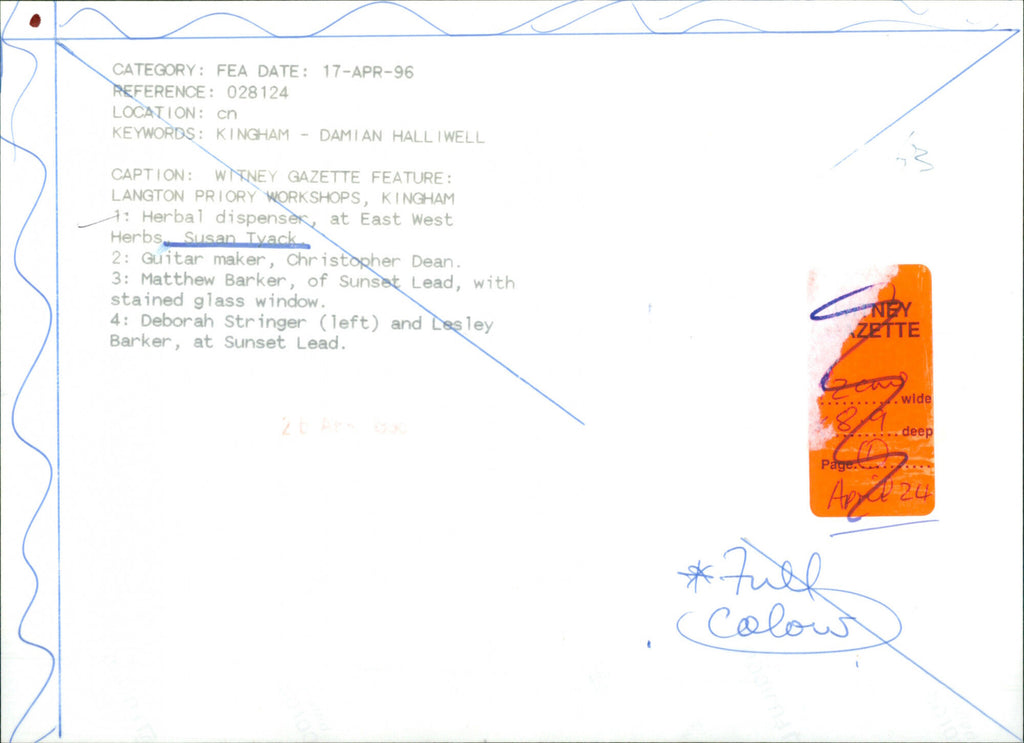 CATEGORY: FEA DATE: 17-APR-96
REFERENCE: 028124
LOCATION: cn
KEYWORDS: KINGHAM - DAMIAN HALLIWELL
CAPTION: WITNEY GAZETTE FEATURE:
LANGTON PRIORY WORKSHOPS, KINGHAM
1: Herbal dispenser, at East West
Herbs, Susan Tyack.
2: Guitar maker, Christopher Dean.
3: Matthew Barker, of Sunset Lead, with
stained glass window.
4: Deborah Stringer (left) and Lesley
Barker, at Sunset Lead.
NEY
ZETTE
wide
deep
Page (1)
April 24
* Full
Colour